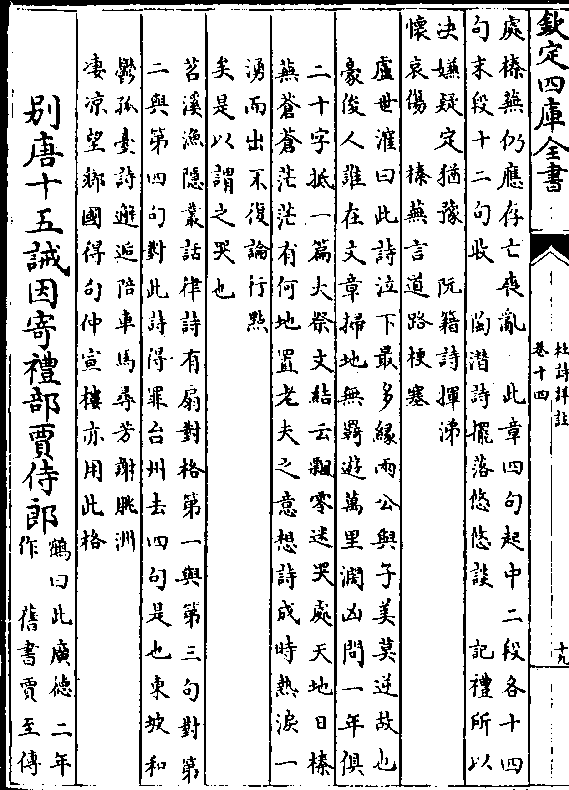 欽定四庫全書
杜詩詳註
卷十四
十九
處榛蕪仍應存亡喪亂　此章四句起中二段各十四
句末段十二句收　陶潛詩擺落悠悠談　記禮所以
决嫌疑定猶豫　阮籍詩揮涕
懷哀傷　榛蕪言道路梗塞
盧世㴶曰此詩泣下最多緣兩公與子美莫逆故也
豪俊人誰在文章掃地無羇遊萬里濶凶問一年俱
二十字抵一篇大祭文結云飄零迷哭處天地日榛
蕪蒼蒼茫茫有何地置老夫之意想詩成時熱淚一
湧而出不復論行點
矣是以謂之哭也
苕溪漁隱叢話律詩有扇對格第一與第三句對第
二與第四句對此詩得罪台州去四句是也東坡和
鬱孤臺詩邂逅陪車馬尋芳謝朓洲
凄凉望鄉國得句仲宣樓亦用此格
別唐十五誡因寄禮部賈侍郎
鶴曰此廣德二年
作　舊書賈至傳